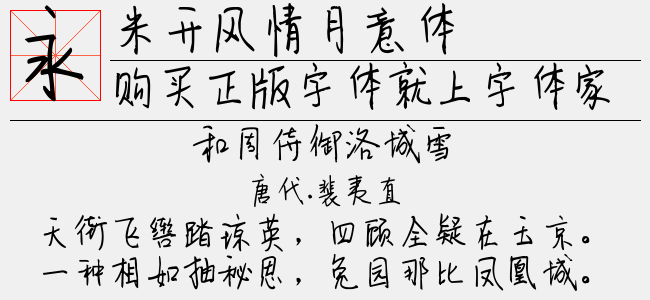 永
米开风情月意体
购买正版字体就上字体家
和周侍御洛城雪
唐代.裴夷直
天街飞辔踏琼英，四顾全疑在玉京。
一种相如抽秘思，兔园那比凤凰城。